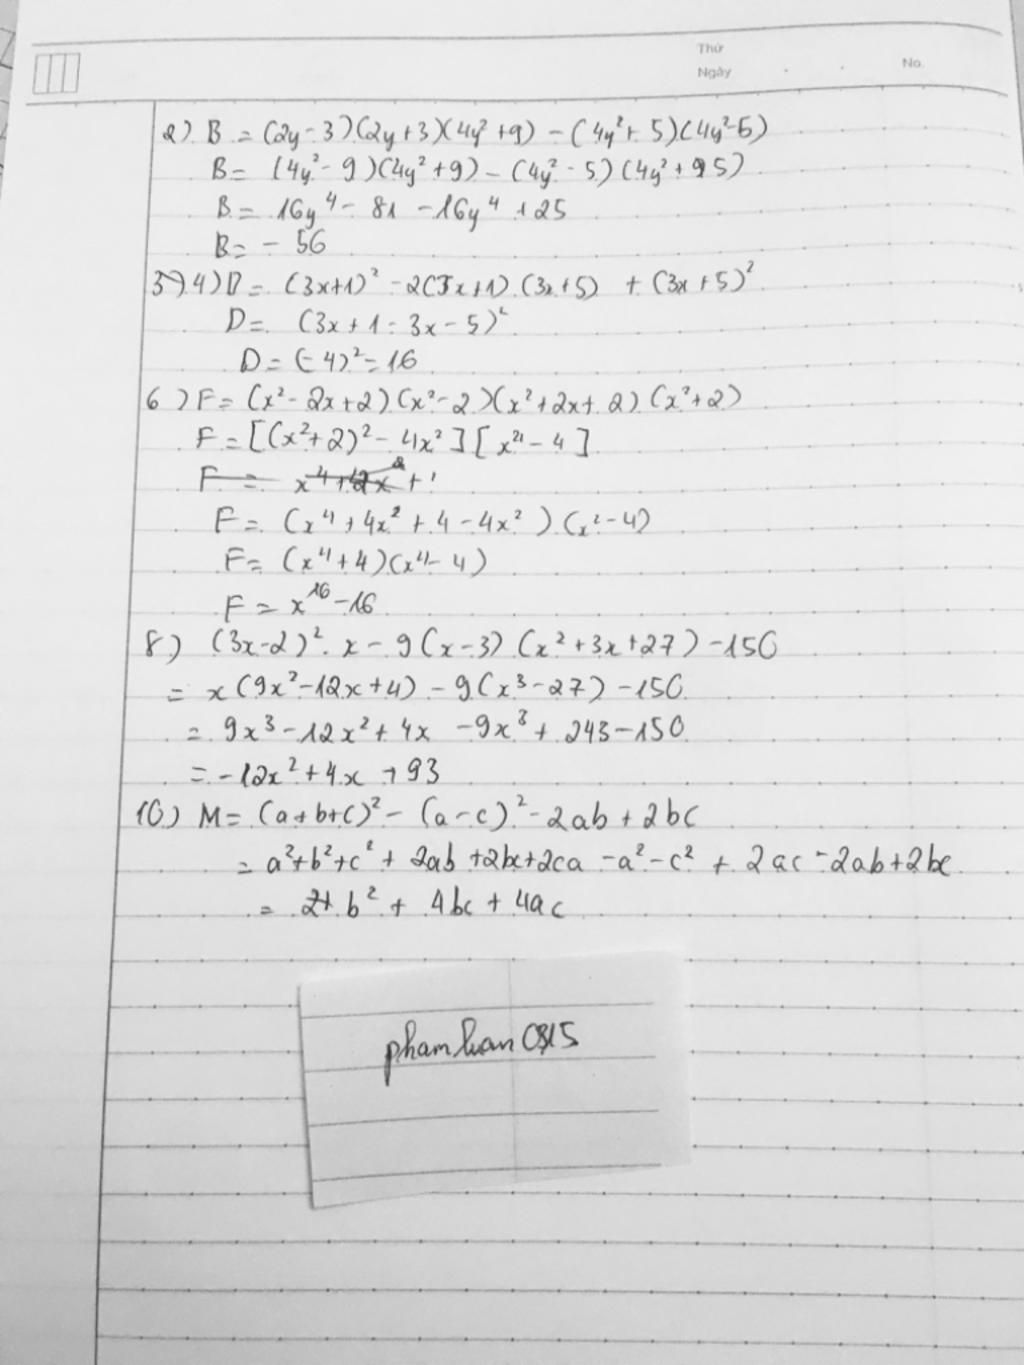 Thứ
Ngày
No.
2) B = (2y - 3)(2y + 3)(4y² + 9) - (4y² + 5)(4y² - 5)
B = (4y² - 9)(4y² + 9) - (4y² - 5)(4y² + 5)
B = 16y⁴ - 81 - 16y⁴ + 25
B = - 56
4) D = (3x+1)² - 2(3x+1).(3x+5) + (3x+5)²
D = (3x + 1 - 3x - 5)²
D = (-4)² = 16
6) F = (x² - 2x + 2)(x² - 2)(x² + 2x + 2)(x² + 2)
F = [(x² + 2)² - 4x²][x⁴ - 4]
F = (x⁴ + 4x² + 4 - 4x²).(x² - 4)
F = (x⁴ + 4)(x⁴ - 4)
F = x¹⁶ - 16
8) (3x - 2)². x - 9(x - 3)(x² + 3x + 27) - 150
= x(9x² - 12x + 4) - 9(x³ - 27) - 150
= 9x³ - 12x² + 4x - 9x³ + 243 - 150
= -12x² + 4x + 93
10) M = (a + b + c)² - (a - c)² - 2ab + 2bc
= a² + b² + c² + 2ab + 2bc + 2ca - a² - c² + 2ac - 2ab + 2bc
= b² + 4bc + 4ac
phamluan0815